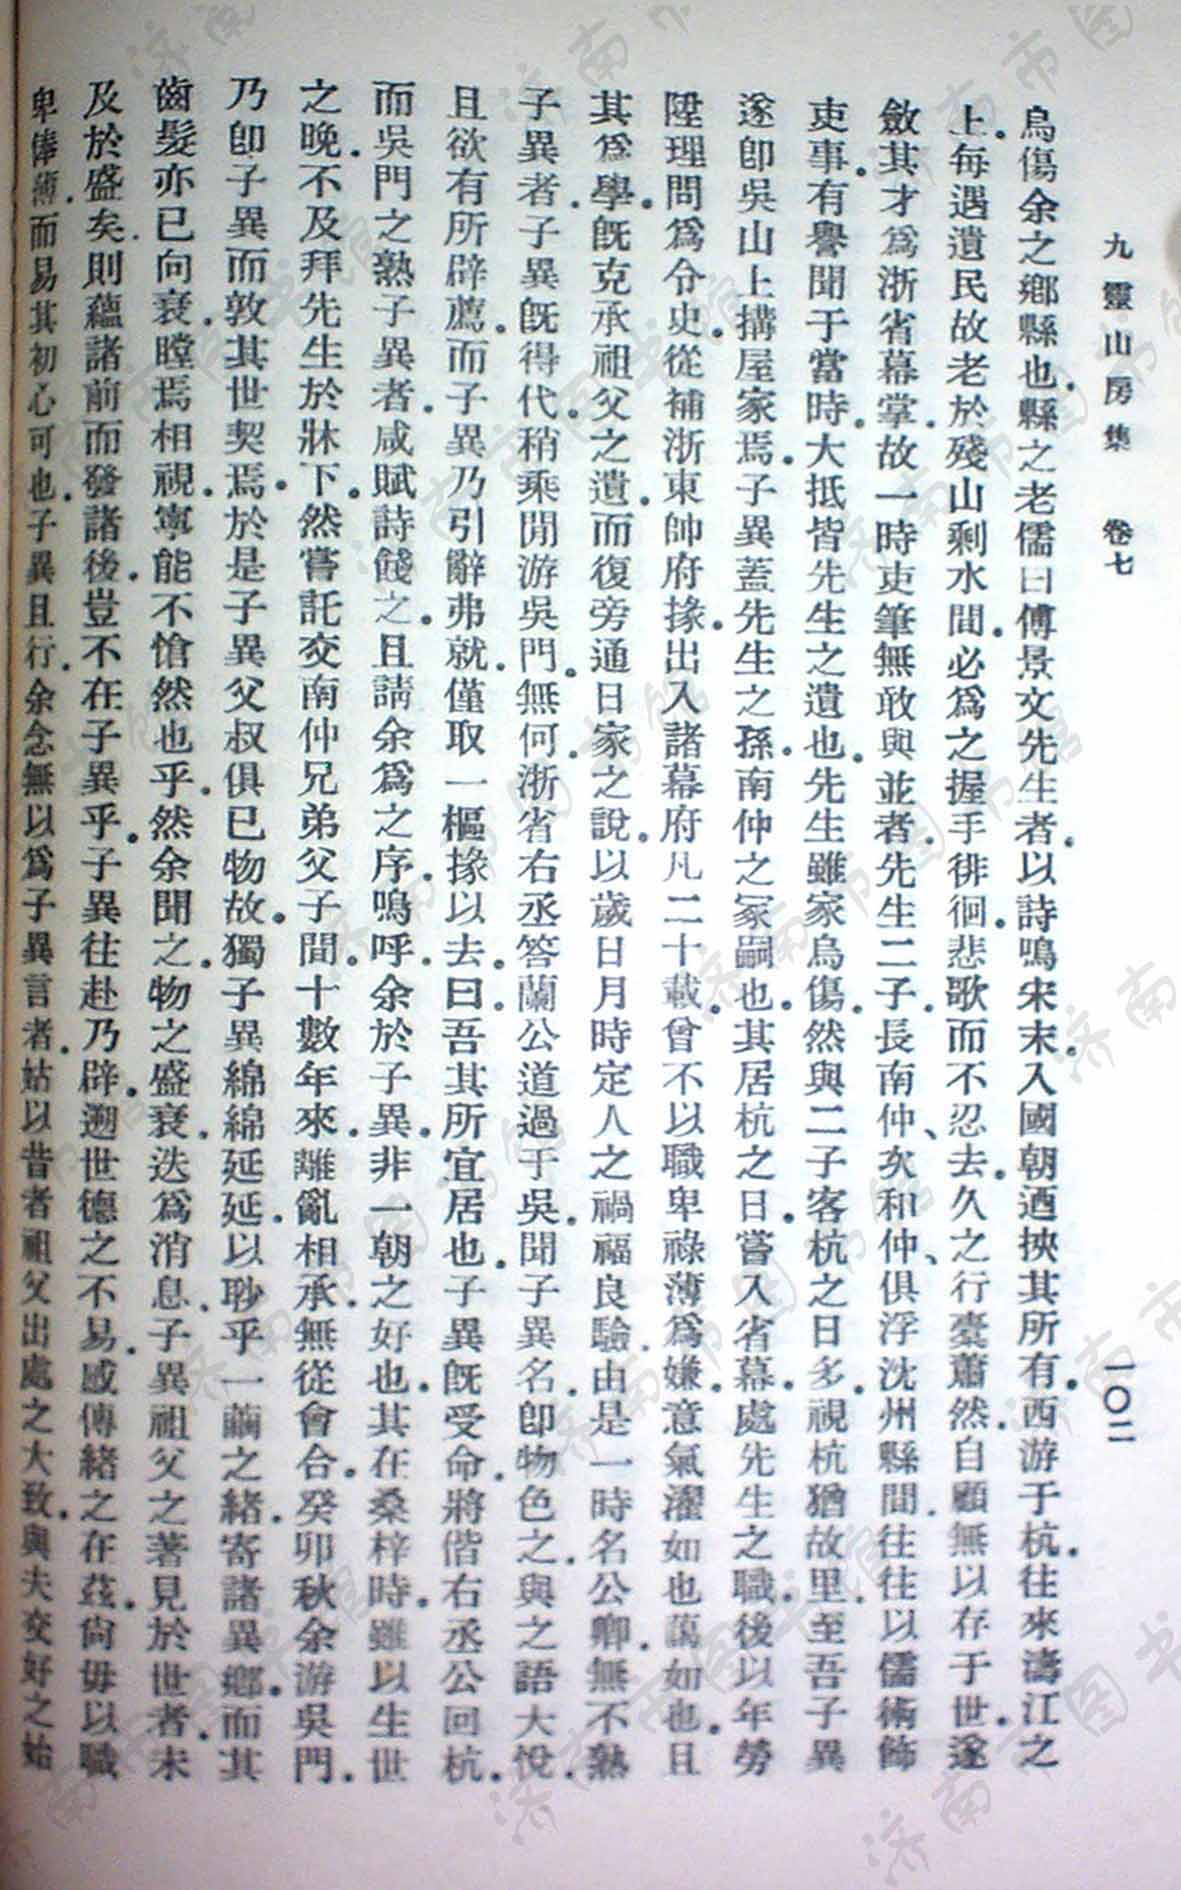 九靈山房集　卷七　一〇二
烏傷余之鄉縣也．縣之老儒曰傅景文先生者．以詩鳴宋末．入國朝迺挾其所有．西游于杭．往來濤江之
上．每遇遺民故老於殘山剩水間．必爲之握手徘徊．悲歌而不忍去．久之行橐蕭然．自顧無以存于世．遂
斂其才爲浙省幕掌．故一時吏筆無敢與並者．先生二子．長南仲、次和仲、俱浮沈州縣間．往往以儒術飾
吏事．有譽聞于當時．大抵皆先生之遺也．先生雖家烏傷．然與二子客杭之日多．視杭猶故里．至吾子異
遂卽吳山上搆屋家焉．子異蓋先生之孫．南仲之冢嗣也．其居杭之日．嘗入省幕．處先生之職．後以年勞
陞理問爲令史．從補浙東帥府掾．出入諸幕府凡二十載．曾不以職卑祿薄爲嫌．意氣濯如也．藹如也．且
其爲學．旣克承祖父之遺．而復旁通日家之說．以歲日月時定人之禍福良驗．由是一時名公卿．無不熟
子異者．子異旣得代．稍乘閒游吳門．無何．浙省右丞答蘭公道過于吳．聞子異名．卽物色之．與之語大悅．
且欲有所辟薦．而子異乃引辭弗就．僅取一樞掾以去．曰．吾其所宜居也．子異旣受命．將偕右丞公回杭．
而吳門之熟子異者．咸賦詩餞之．且請余爲之序．嗚呼．余於子異．非一朝之好也．其在桑梓時．雖以生世
之晚．不及拜先生於牀下．然嘗託交南仲兄弟父子間．十數年來．離亂相承．無從會合．癸卯秋余游吳門．
乃卽子異而敦其世契焉．於是子異父叔俱已物故．獨子異綿綿延延．以聊乎一繭之緒．寄諸異鄉．而其
齒髮亦已向衰．瞠焉相視．寧能不愴然也乎．然余聞之．物之盛衰．迭爲消息．子異祖父之著見於世者．未
及於盛矣．則蘊諸前而發諸後．豈不在子異乎．子異往赴乃辟．遡世德之不易．感傳緒之在茲．尙毋以職
卑俸薄．而易其初心可也．子異且行．余念無以爲子異言者．姑以昔者祖父出處之大致．與夫交好之始